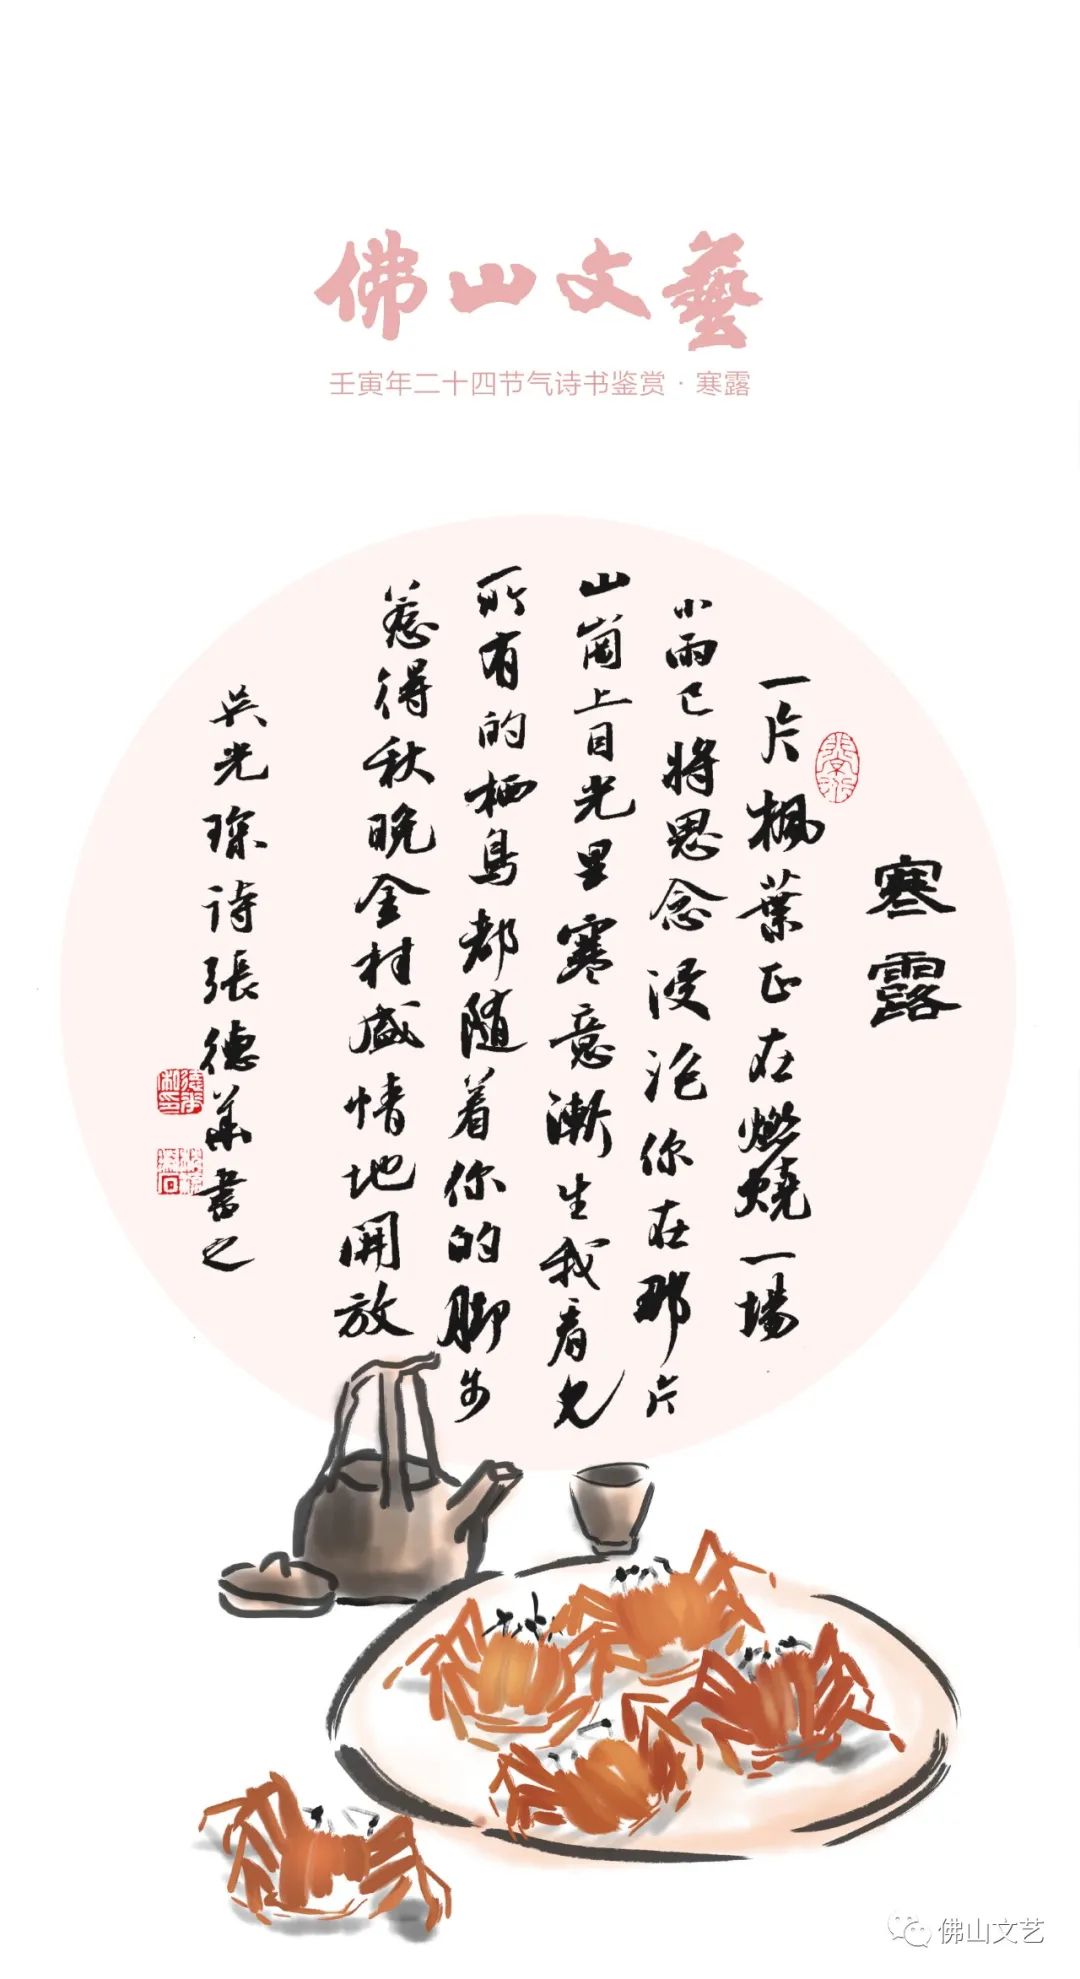 佛山文藝
壬寅年二十四节气诗书鉴赏·寒露
寒露
一片楓葉正在燃燒一場
小雨已将思念浸泡你在那片
山崗上目光里寒意漸生我看見
所有的栖鳥都随着你的脚步
惹得秋晚全村盛情地開放
吴光琛诗張德華書之
佛山文艺